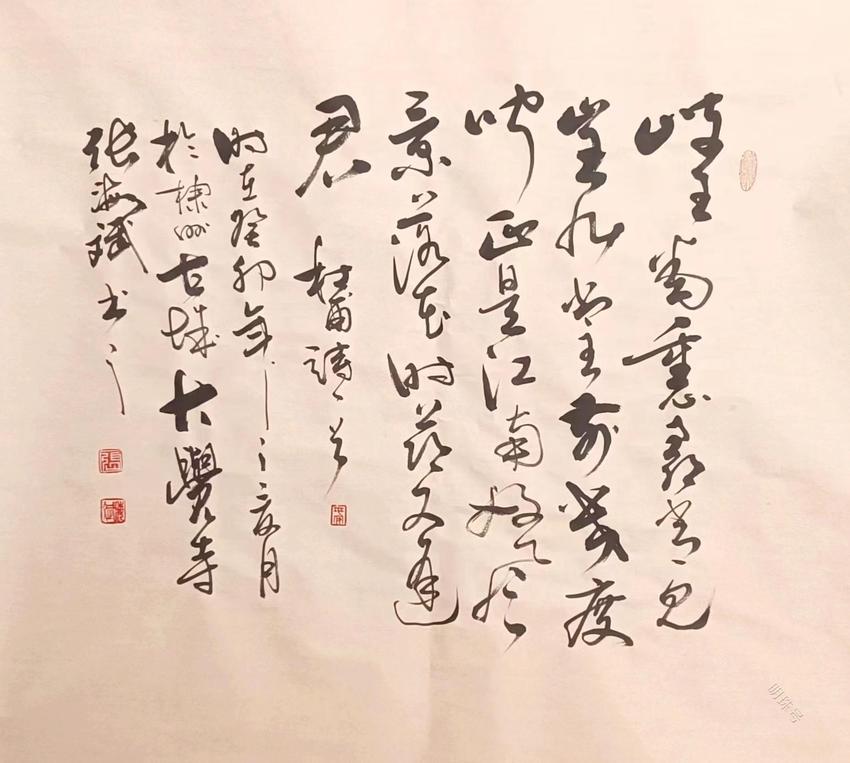 岐王宅裏尋常見
崔九堂前幾度
聞正是江南好風
景落花时節又逢
君 杜甫詩一首
时在癸卯年之夏月
於棣州古城大覺寺
张海斌书之
張
明珠号